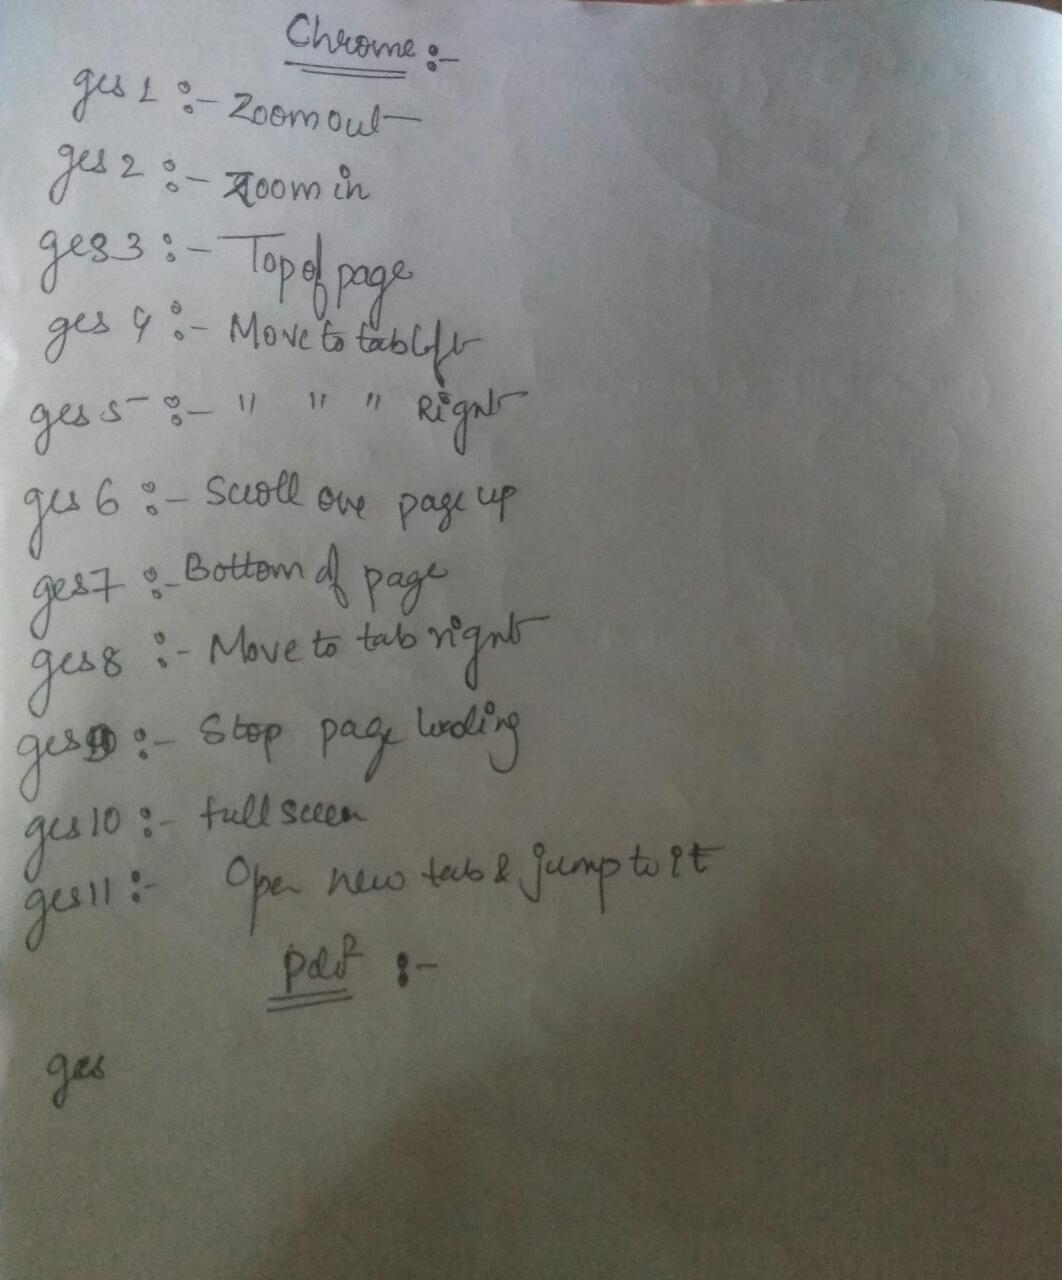 Chrome :-
ges 1 :- Zoom out
ges 2 :- Zoom in
ges 3 :- Top of page
ges 4 :- Move to tab left
ges 5 :- " " " Right
ges 6 :- Scroll one page up
ges 7 :- Bottom of page
ges 8 :- Move to tab right
ges 9 :- Stop page loading
ges 10 :- full sceen
ges 11 :- Open new tab & jump to it
pdf :-
ges